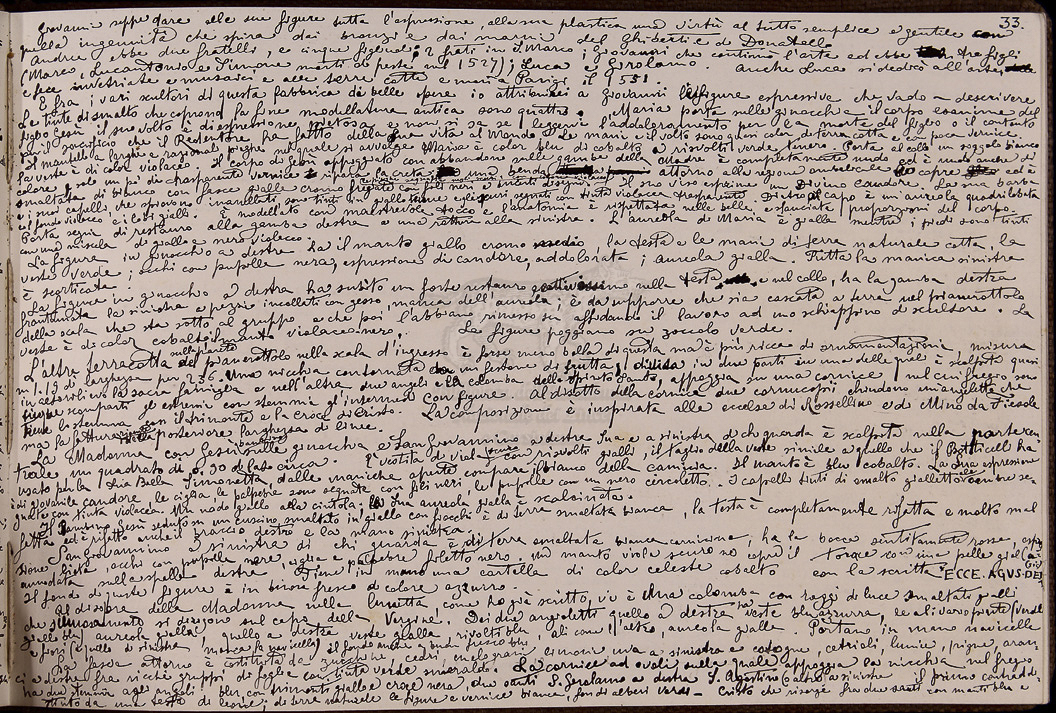 33.
Giovanni seppe dare alle sue figure tutta l'espressione, alla sua plastica una virtù al tutto semplice e gentile con
quella ingenuità che spira dai bronzi e dai marmi del Ghiberti e di Donatello
Andrea ebbe due fratelli, e cinque figli: 2 frati in S. Marco; Giovanni che continuò l'arte ed ebbe tre figli
(Marco, Lucantonio e Simone morti di peste nel 1527); Luca; Girolamo. Anche Luca si dedicò all'arte
e fece invetriate e musaici e alle terre cotte e morì a Parigi il 1551.
E fra i vari scultori di questa fabbrica di belle opere io attribuirei a Giovanni le figure espressive che vado descrivere
Le tinte di smalto che coprono la fine modellatura antica sono quattro. Maria porta sulle ginocchia il corpo esanime del
figlio Gesù, il suo volto è di espressione pietosa e non si sa se si legge l'addoloramento per la morte del figlio o il contento
per il sacrificio che il Redentore ha fatto della sua vita al Mondo. Le mani e il volto sono quasi color di terra cotta e con poca vernice.
Il mantello a larghe e razionali pieghe nel quale si avvolge Maria è color blu di cobalto a risvolti verde tenero. Porta al collo un soggolo bianco
la veste è di color violaceo. Il corpo di Gesù appoggiato con abbandono sulle gambe della Madre è completamente nudo ed è nudo anche di
colore e solo un po' di trasparente vernice ripara la creta una benda attorno alla regione ombelicale lo copre ed è
smaltata di bianco con fasce gialle cromo. Il suo viso esprime un Divino candore. La sua barba
e i suoi capelli, che spiovono inanellati sono tinti in giallo con tinta violacea trasparente. Dietro il capo è un aureola quadrilobata
a fondo violaceo e i lobi gialli. È modellato con maestrevole tocco e l'anatomia è rispettata nelle belle e squisite proporzioni del corpo.
Porta segni di restauro alla gamba destra e una rottura alla sinistra. L'aureola di Maria è gialla mentre i piedi sono tinti
con una miscela di giallo e nero violaceo.
La figura in ginocchio a destra ha il manto giallo cromo medio, la testa e le mani di terra naturale cotta, la
veste verde; occhi con pupille nera, espressione di candore, addolorata; aureola gialla. Tutta la manica sinistra
è scorticata.
La figura in ginocchio a destra ha subito un forte restauro nella testa e nel collo, ha la gamba destra
frantumata la sinistra e pezzi incollati con gesso, manca dell'aureola; è da supporre che sia cascata a terra nel pianerottolo
della scala che sta sotto al gruppo e che poi l'abbiano rimesso su affidando il lavoro ad uno schiappino di scultore. La
veste è di color cobalto il manto violaceo nero. La figure poggiano su zoccolo verde.
L'altra terracotta sulla parete del pianerottolo nella scala d'ingresso è forse meno bella di questa ma è più ricca di ornamentazioni misura
m. 1,19 di larghezza per 1,36. Una nicchia contornata da un festone di frutta, divisa in due parti in una delle quali è scolpita quasi
in altorilievo la sacra famiglia e nell'altra due angeli e la colomba dello Spirito Santo, appoggia su una cornice nel cui fregio sono
cinque scomparti gli estremi con stemmi gl'intermedi con figure. Al disotto della cornice due cornucopie chiudono un angeletto che
tiene lo stemma con il trimonte e la croce di Cristo. La composizione è inspirata alle eccelse di Rossellino e di Mino da Fiesole
ma la fattura posteriore larghezza di linee.
La Madonna con Gesù bambino sulle ginocchia e San Giovannino a destra sua e a sinistra di chi guarda è scolpita nella parte cen-
trale un quadrato di 0,50 di lato circa. È vestita di viola scuro con risvolti gialli, il taglio della veste simile a quello che il Botticelli ha
usato per la sua Bella Simonetta dalle maniche aperte compare il bianco della camicia. Il manto è blu cobalto. La sua espressione
di giovanile candore, le ciglia, le palpebre sono segnate con fili neri, le pupille con un nero cerchietto. I capelli tinti di smalto gialletto con ombre se-
gnate con tinta violacea. Un nodo giallo alla cintola. La sua aureola gialla è scalsinata.
Il Bambino Gesù seduto su un cuscino smaltato in giallo con fiocchi è di terra smaltata bianca, la testa è completamente rifatta e molto mal
fatta ed è rifatto anche il braccio destro e la mano sinistra.
San Giovannino a sinistra di chi guarda è di terra smaltata bianca carnicina, ha la bocca sentitamente rossa, espres-
sione lieta, occhi con pupilla nera, ciglia e palpebre filetto nero. Un manto viola scuro ne copre il torace con una pelle gialla
annodata sulle spalle destra. Tiene in mano una cartella di color celeste cobalto con la scritta "ECCE. AGVS. DEI
Il fondo di queste figure è in buon fresco di colore azzurro.
Al disopra della Madonna nella lunetta, come ho già scritto, v'è una colomba con raggi di luce smaltati gialli
che si dirigono sul capo della Vergine. Dei due angioletti quello a destra ha veste blu azzurra, le ali vario pinte (verdi
gialle blu) aureola gialla; quello a destra veste gialla, risvolti blu, ali come l'altro, aureola gialla. Portano in mano navicelle
e fiori (a quello di sinistra manca la navicella) il fondo anche a buon fresco blu.
La fascia attorno è costituita da zucchine, cedri, mele granate limoni uva a sinistra e cotogne, cetrioli, lumie, pigne, aran-
ci a destra fra ricchi gruppi di foglie con tinta verde smeraldo. La cornice ad ovuli sulla quale appoggia la nicchia nel fregio
ha due stemmi agli angoli, blu con trimonti gialli e croce nera, due santi S. Girolamo a destra S. Agostino a sinistra il primo contraddi-
stinto da una testa di leone; di terra naturale le figure e vernice bianca, fondi alberi verdi – Cristo che risorge fra due santi con manti blu e